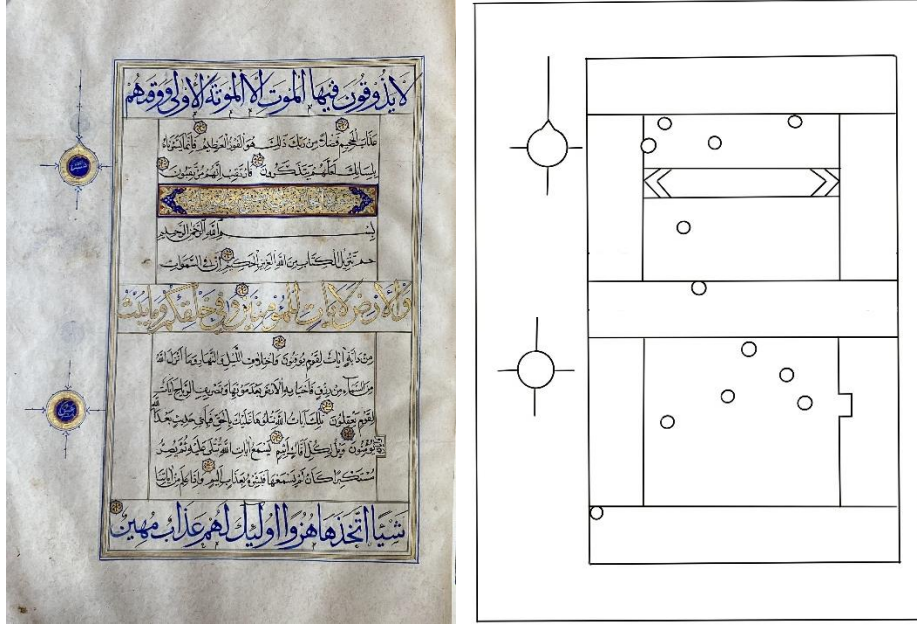 لا يذوقون فيها الموت الا الموتة الاولى ووقهم
عذاب الجحيم فضلا من ربك ذلك هو الفوز العظيم فانما يسرناه
بلسانك لعلهم يتذكرون فارتقب انهم مرتقبون
بسم الله الرحمن الرحيم
حم تنزيل الكتاب من الله العزيز الحكيم ان في السموات
والارض لايات للمؤمنين وفي خلقكم وما يبث
من دابة ايات لقوم يوقنون واختلاف الليل والنهار وما انزل الله
من السماء من رزق فاحيا به الارض بعد موتها وتصريف الرياح ايات
لقوم يعقلون تلك ايات الله نتلوها عليك بالحق فباي حديث بعد الله
يؤمنون ويل لكل افاك اثيم يسمع ايات الله تتلى عليه ثم يصر
مستكبرا كان لم يسمعها فبشره بعذاب اليم واذا علم من اياتنا
شيئا اتخذها هزوا اولئك لهم عذاب مهين